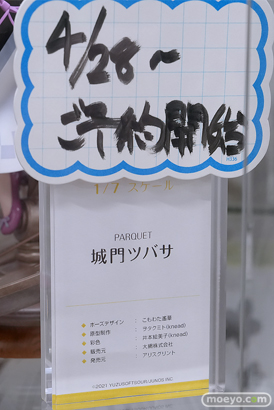 4/28～
ご予約開始
1/7 スケール
PARQUET
城門ツバサ
◆ ポーズデザイン : こもわた遙華
◆ 原型制作 : ヲタクミト(knead)
◆ 彩色 : 沢本絵美子(knead)
◆ 販売元 : 大網株式会社
◆ 発売元 : アリスグリント
©2021 YUZUSOFT/SOUR, JUNOS INC.
moeyo.com